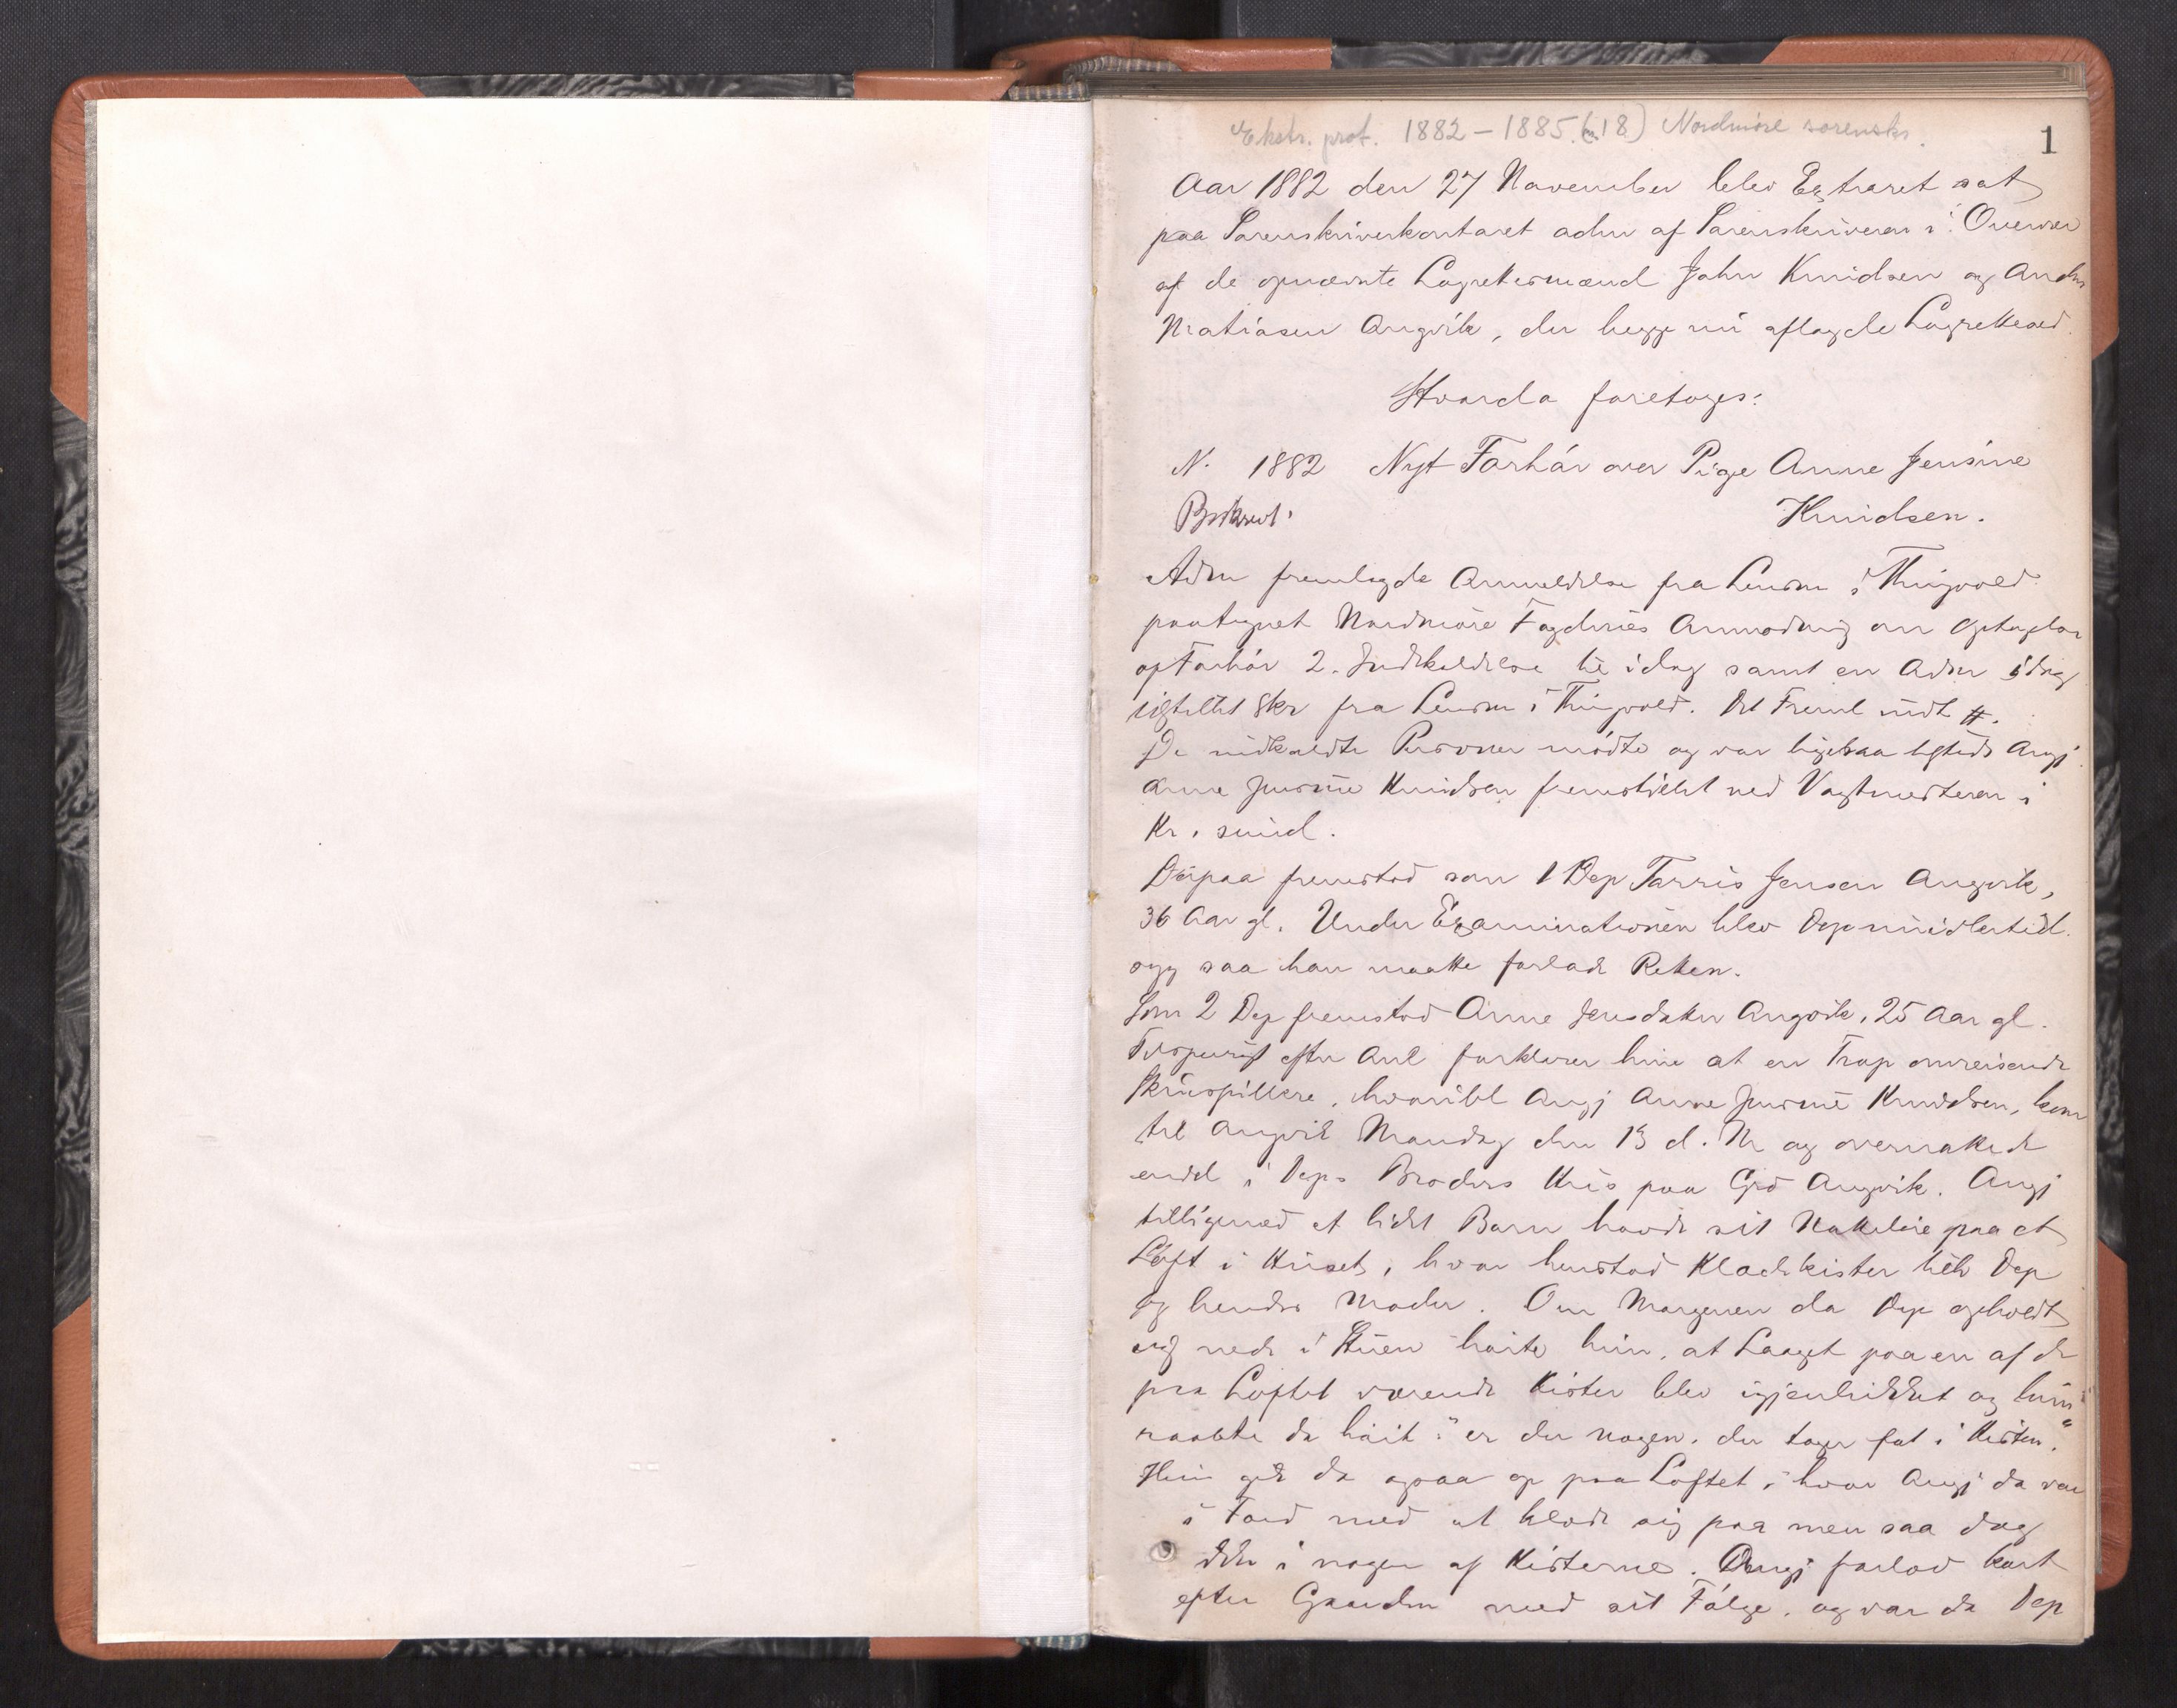 Ekstr. prot. 1882 – 1885. (18) Nordmöre sorenskr.
1
Aar 1882 den 27 November blev Extraret sat
paa Sorenskriverkontoret adm af Sorenskriveren i Overvær
af de opnævnte Lagrettesmænd John Knudsen og Anders
Matiasen Angvik, der begge nu aflagde Lagretteed.
Hvorda foretoges:
N. 1882 Nyt Forhör over Pige Anne Jensine
Beskrevet Knudsen.
Adm fremlagde Anmeldelse fra Lensm i Thingvold
paategnet Nordmöre Fogderies Anmodning om Optagelse
af Forhör 2. Indkaldelse til idag samt en Adm idag
tilstillet Skr fra Lensm i Thingvold. Det Freml indt #.
De indkaldte Personer mödte og var ligesaa tilstede Angj
Anne Jensine Knudsen fremstillet ved Vagtmesteren i
Kr. sund.
Derpaa fremstod som 1 Dep Torris Jensen Angvik,
36 Aar gl. Under Examinationen blev Dep imidlertid
syg saa han maatte forlade Retten.
Som 2 Dep fremstod Anne Jensdatter Angvik, 25 Aar gl.
Tilspurgt efter Anl forklarer hun at en Trop omreisende
Skuespillere, hvoriblt Angj Anne Jensine Knudsen, kom
til Angvik Mandag den 13 d. M og overnattede
endel i Deps Broders Hus paa Grd Angvik. Angj
tilligemed et lidet Barn havde sit Natteleie paa et
Loft i Huset, hvor henstod Klædekister tilh Dep
og hendes Moder. Om Morgenen da Dep opholdt
sig nede i Stuen hörte hun, at Laaget paa en af de
paa Loftet værende Kister blev igjenlukket og hun
raabte da höit: "er der nogen, der tager fat i Kisten."
Hun gik da ogsaa op paa Loftet, hvor Angj da var
i Færd med at klæde sig paa men saa dog
ikke i nogen af Kisterne. Angj forlod kort
efter Gaarden med sit Fölge, og var da Dep